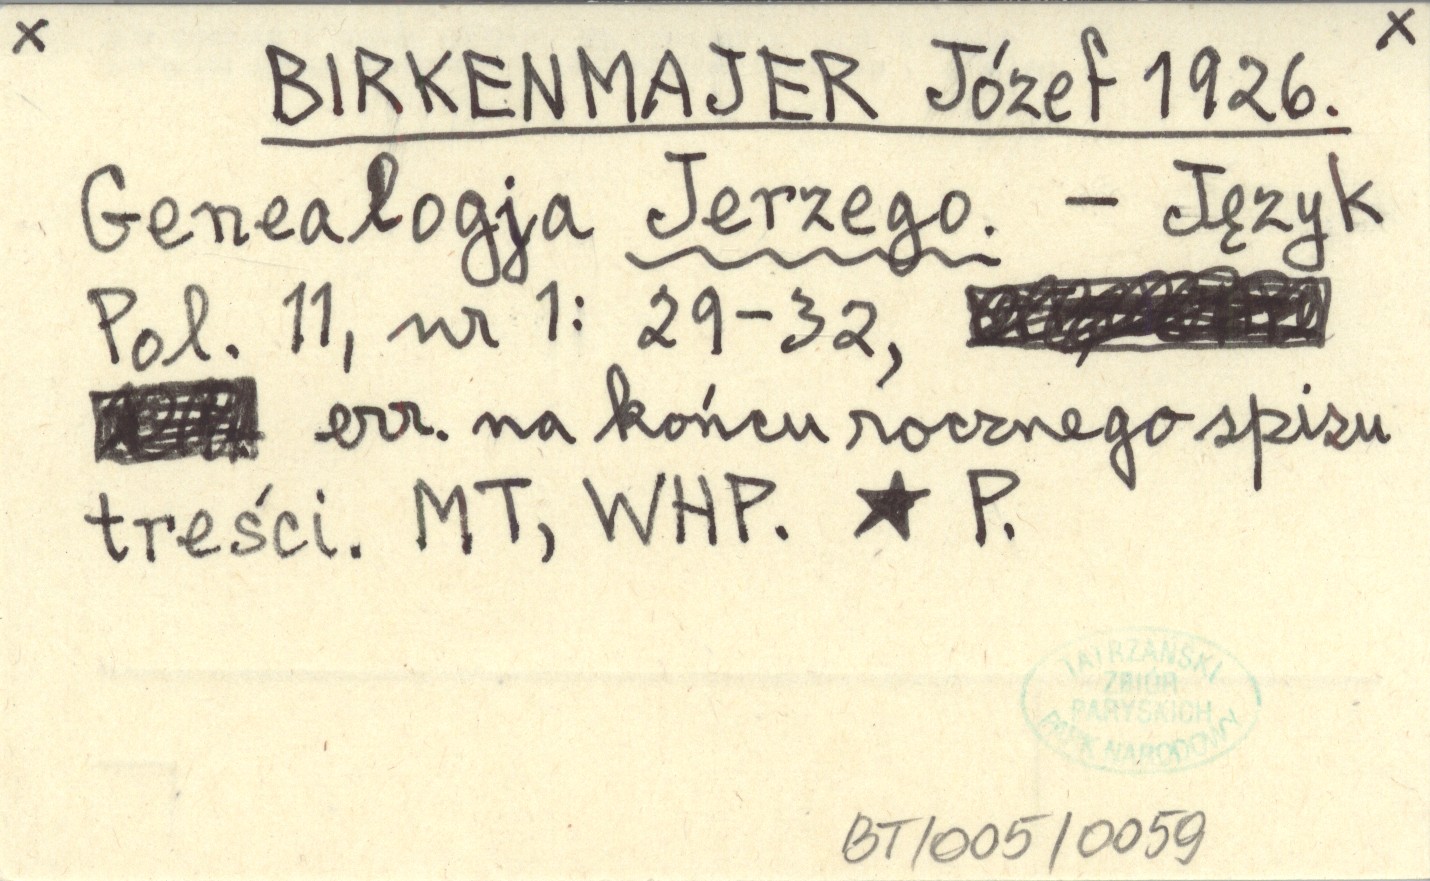 x x
BIRKENMAJER Józef 1926.
Genealogja Jerzego. – Język
Pol. 11, nr 1: 29–32,
err. na końcu rocznego spisu
treści. MT, WHP. ★ P.
TATRZAŃSKI
ZBIÓR
PARYSKICH
PARK NARODOWY
BT/005/0059